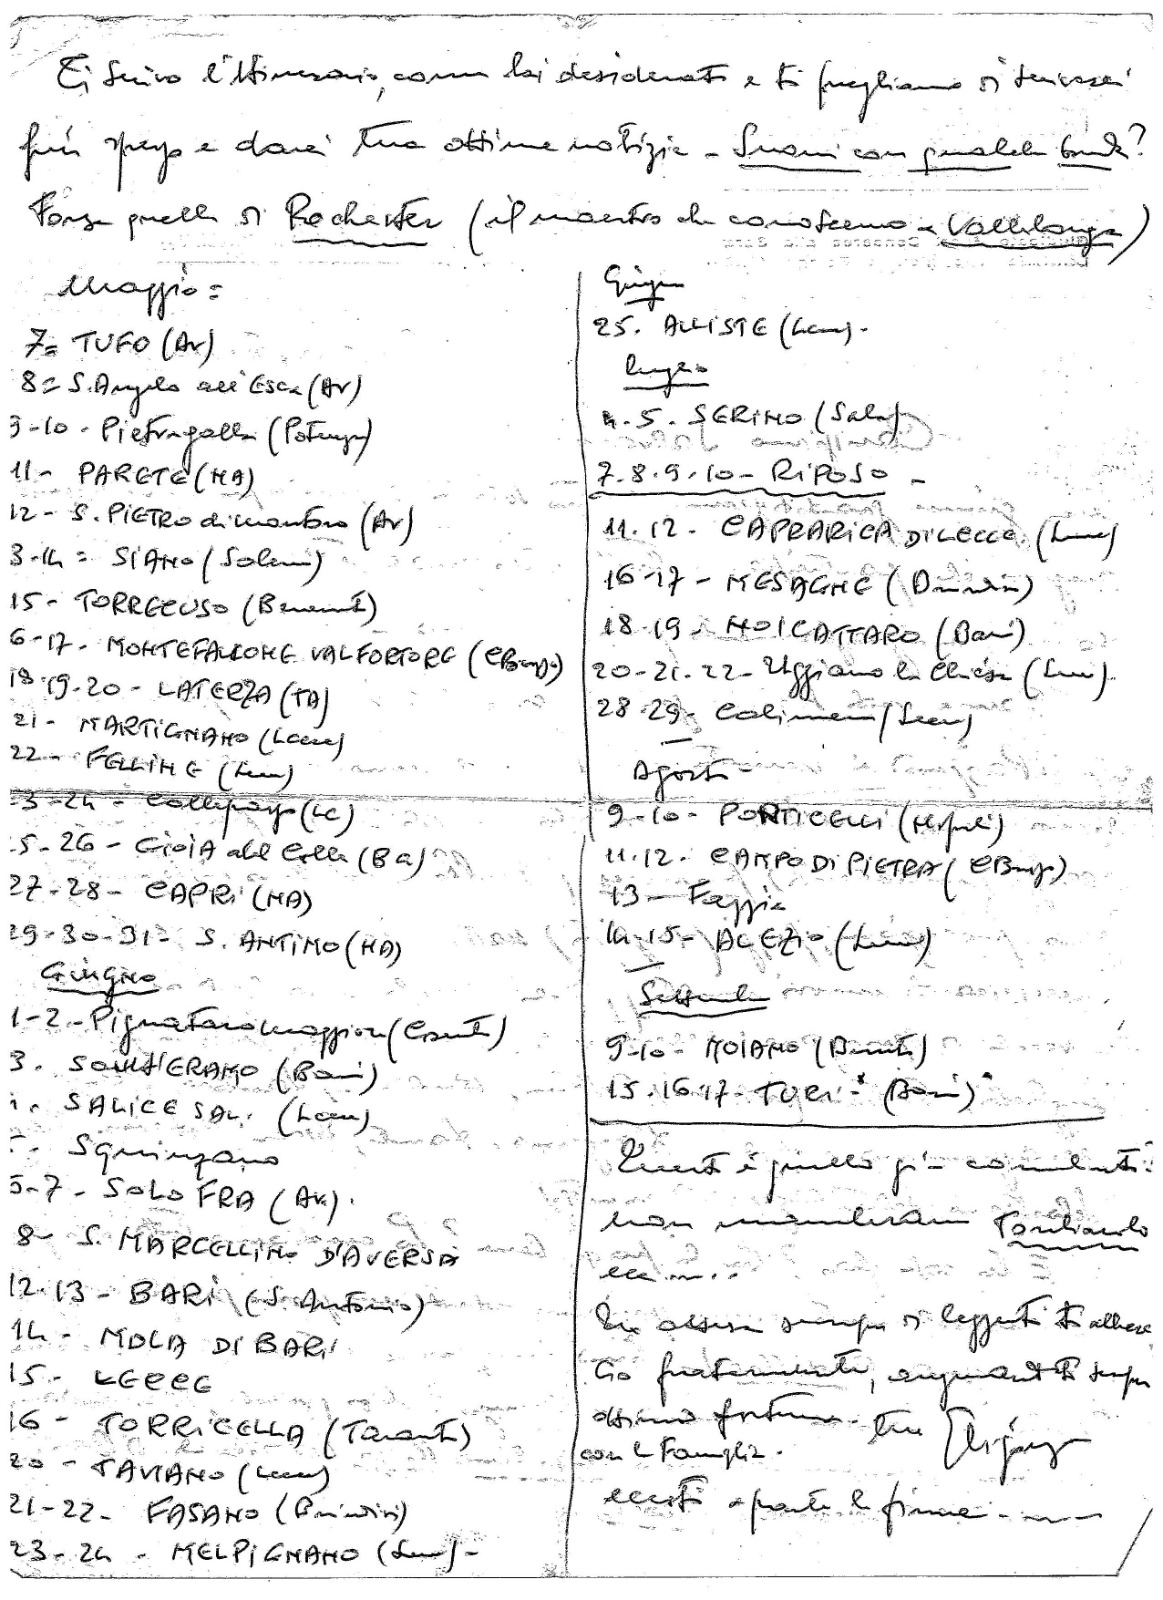 Ti scrivo l'itinerario, come hai desiderato e ti preghiamo di scriverci
più spesso e darci tue ottime notizie - Suoni con qualche banda?
Forse quella di Rochester (il maestro che conoscemmo a Vallelonga)
Maggio =
7= TUFO (Av)
8= S. Angelo all'Esca (Av)
9-10 - Pietragalla (Potenza)
11 - PARETE (NA)
12 - S. PIETRO di Montoro (Av)
3-14 = SIANO (Salerno)
15 - TORRECUSO (Benevento)
6-17 - MONTEFALCONE VALFORTORE (CBasso)
18-19-20 - LATERZA (TA)
21 - MARTIGNANO (Lecce)
22 - FELLINE (Lecce)
3-24 - Collepasso (LC)
5-26 - GIOIA del Colle (Ba)
27-28 - CAPRI (NA)
29-30-31 = S. ANTIMO (NA)
Giugno
1-2 - Pignataro Maggiore (Caserta)
3. SANTERAMO (Bari)
SALICE SAL. (Lecce)
Squinzano
6-7 - SOLOFRA (Av.)
8 - S. MARCELLINO D'AVERSA
12.13 - BARI (S. Antonio)
14 - MOLA DI BARI
15 - LECCE
16 - TORRICELLA (Taranto)
20 - TAVIANO (Lecce)
21-22 - FASANO (Brindisi)
23-24 - MELPIGNANO (Lecce) -
Giugno
25. ALLISTE (Lecce) -
Luglio
4.5. SERINO (Saler)
7.8.9.10 - RIPOSO -
11.12 - CAPRARICA DI LECCE (Lecce)
16-17 - MESAGNE (Brindisi)
18-19 - NOICATTARO (Bari)
20-21-22 - Uggiano la Chiesa (Lecce)
28-29 - Calimera (Lecce)
Agosto -
9-10 - PONTICELLI (Napoli)
11.12 - CAMPO DI PIETRA (CBasso)
13 - Foggia
14-15 - ALEZIO (Lecce)
Settembre
9-10 - MOIANO (Benevento)
15.16.17 - TURI - (Bari)
Questo è quello già combinato:
non mancheranno
ecc....
In attesa sempre di leggerti ti abbrac
cio fraternamente, augurandoti sempre
ottima fortuna - tuo
con la Famiglia.